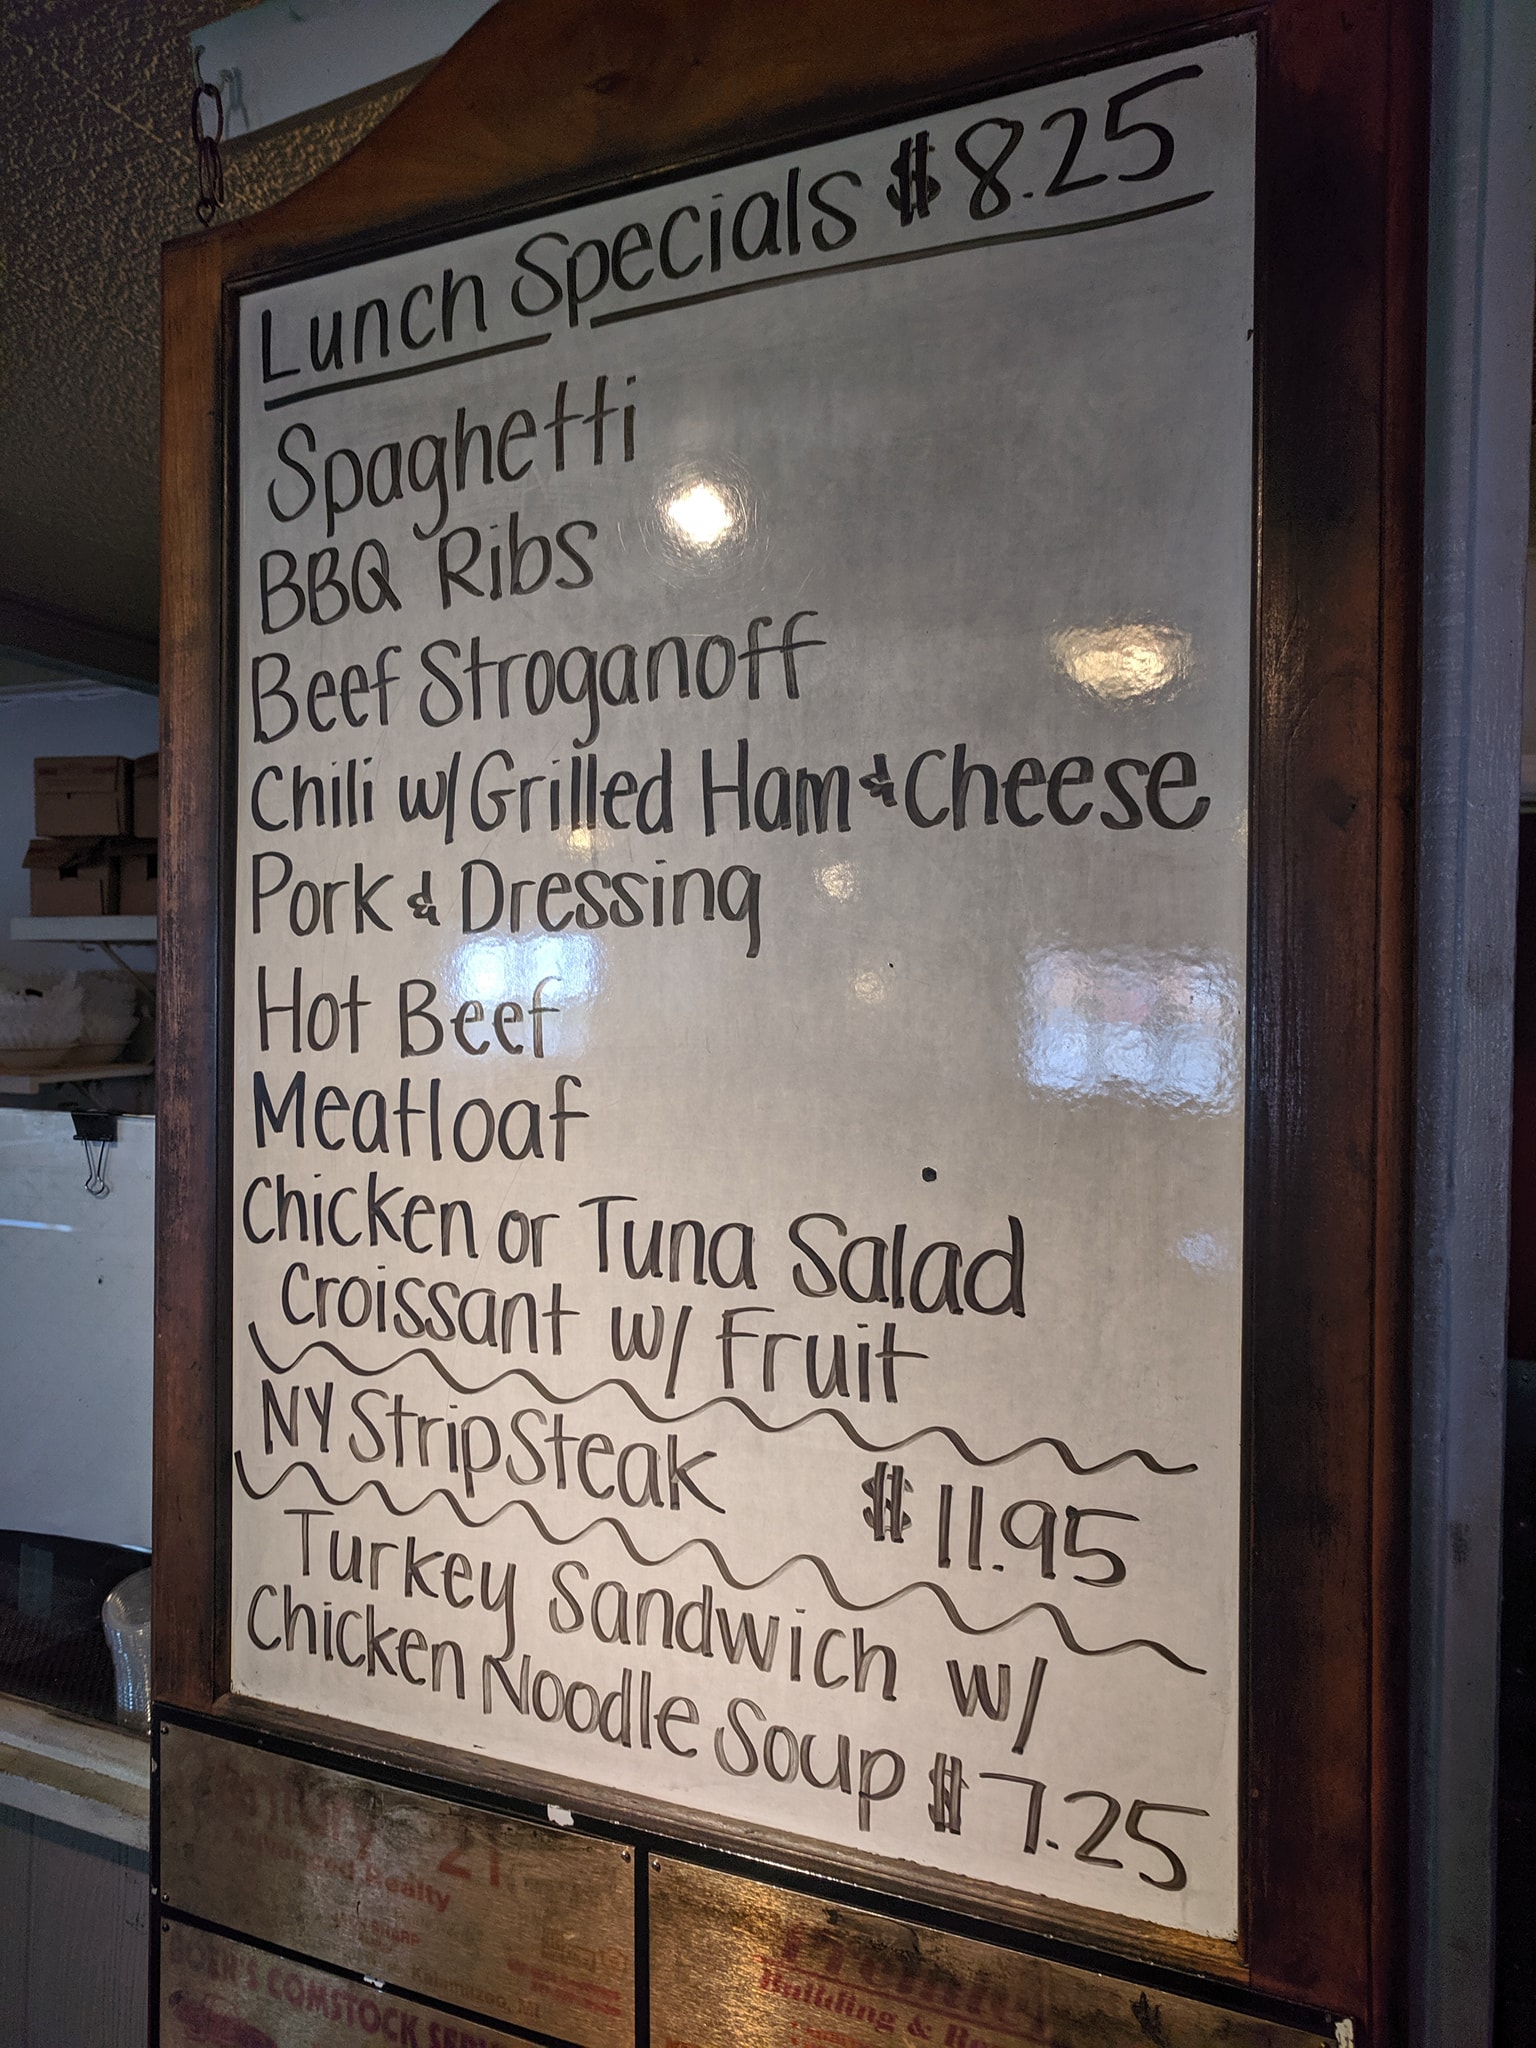 Lunch Specials $8.25
Spaghetti
BBQ Ribs
Beef Stroganoff
Chili w/ Grilled Ham & Cheese
Pork & Dressing
Hot Beef
Meatloaf
Chicken or Tuna Salad
Croissant w/ Fruit
NY Strip Steak $11.95
Turkey Sandwich w/
Chicken Noodle Soup $7.25
21
Advanced Realty
Kalamazoo, MI
COMSTOCK
Building &